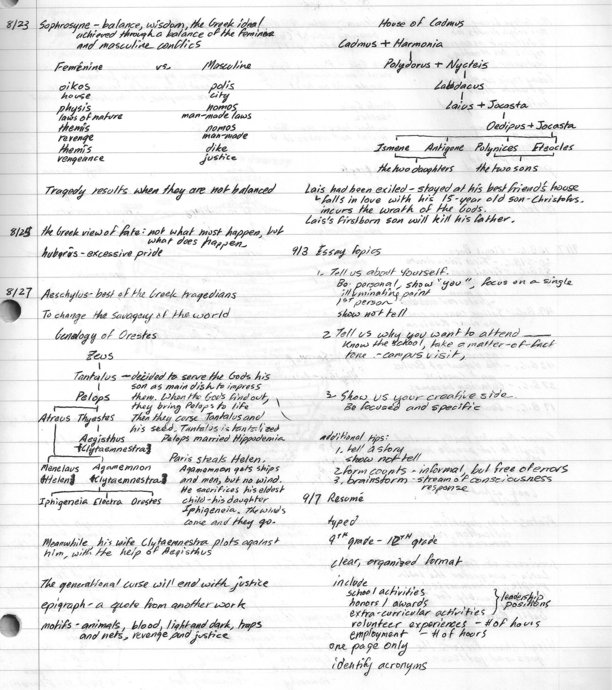 8/23 Sophrosyne - balance, wisdom, the Greek ideal
achieved through a balance of the feminine
and masculine conflicts
Feminine vs. Masculine
oikos polis
house city
physis nomos
laws of nature man-made laws
themis nomos
revenge man-made
themis dike
vengeance justice
Tragedy results when they are not balanced
8/25 the Greek view of fate: not what must happen, but
what does happen.
hubris - excessive pride
8/27 Aeschylus - best of the Greek tragedians
To change the savagery of the world
Genology of Orestes
Zeus
Tantalus - decided to serve the Gods his
son as main dish to impress
Pelops them. When the Gods find out,
they bring Pelops to life
Atreus Thyestes Then they curse Tantalus and
his seed. Tantalus is tantalized
Aegisthus Pelops married Hippodemia
{Clytaemnestra}
Paris steals Helen.
Menelaus Agamemnon Agamemnon gets ships
{Helen} {Clytaemnestra} and men, but no wind.
He sacrifices his eldest
Iphigeneia Electra Orestes child - his daughter
Iphigeneia. The winds
come and they go.
Meanwhile, his wife Clytaemnestra plots against
him, with the help of Aegisthus
The generational curse will end with justice
epigraph - a quote from another work
motifs - animals, blood, light and dark, traps
and nets, revenge and justice
House of Cadmus
Cadmus + Harmonia
Polydorus + Nycteis
Labdacus
Laius + Jocasta
Oedipus + Jocasta
Ismene Antigone Polynices Eteocles
the two daughters the two sons
Lais had been exiled - stayed at his best friend's house
falls in love with his 15-year old son - Christofus.
incurs the wrath of the Gods.
Lais's firstborn son will kill his father.
9/3 Essay Topics
1. Tell us about yourself.
Be personal, show "you", focus on a single
illuminating point
1st person
show not tell
2. Tell us why you want to attend ____
Know the school, take a matter-of-fact
tone - campus visit,
3. Show us your creative side.
Be focused and specific
additional tips:
1. tell a story
show not tell
2. form counts - informal, but free of errors
3. brainstorm - stream of consciousness
response
9/7 Resumé
typed
9TH grade - 12TH grade
clear, organized format
include
school activities
honors / awards
extra-curricular activities } leadership positions
volunteer experiences - # of hours
employment - # of hours
one page only
identify acronyms